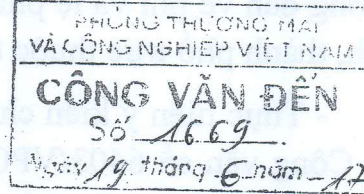 PHÒNG THƯƠNG MẠI
VÀ CÔNG NGHIỆP VIỆT NAM
CÔNG VĂN ĐẾN
Số 1669.
Ngày 19 tháng 6 năm 17